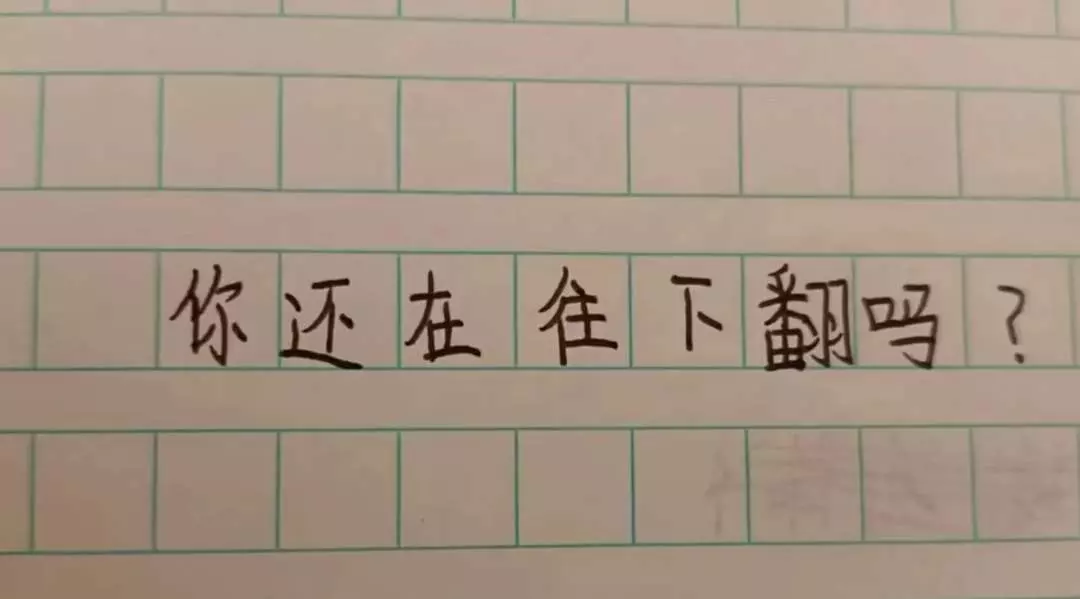 你还在往下翻吗？